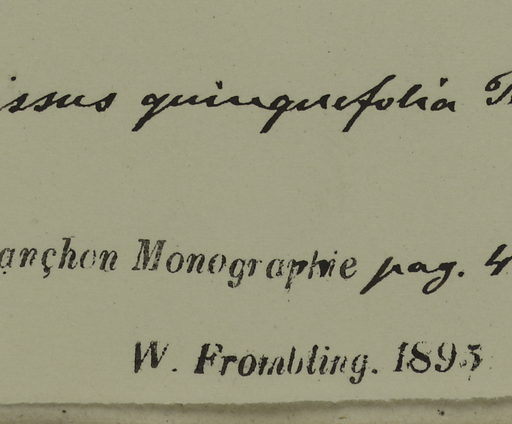 issus quinquefolia
ançhon Monographie pag. 4
W. Frombling. 1895